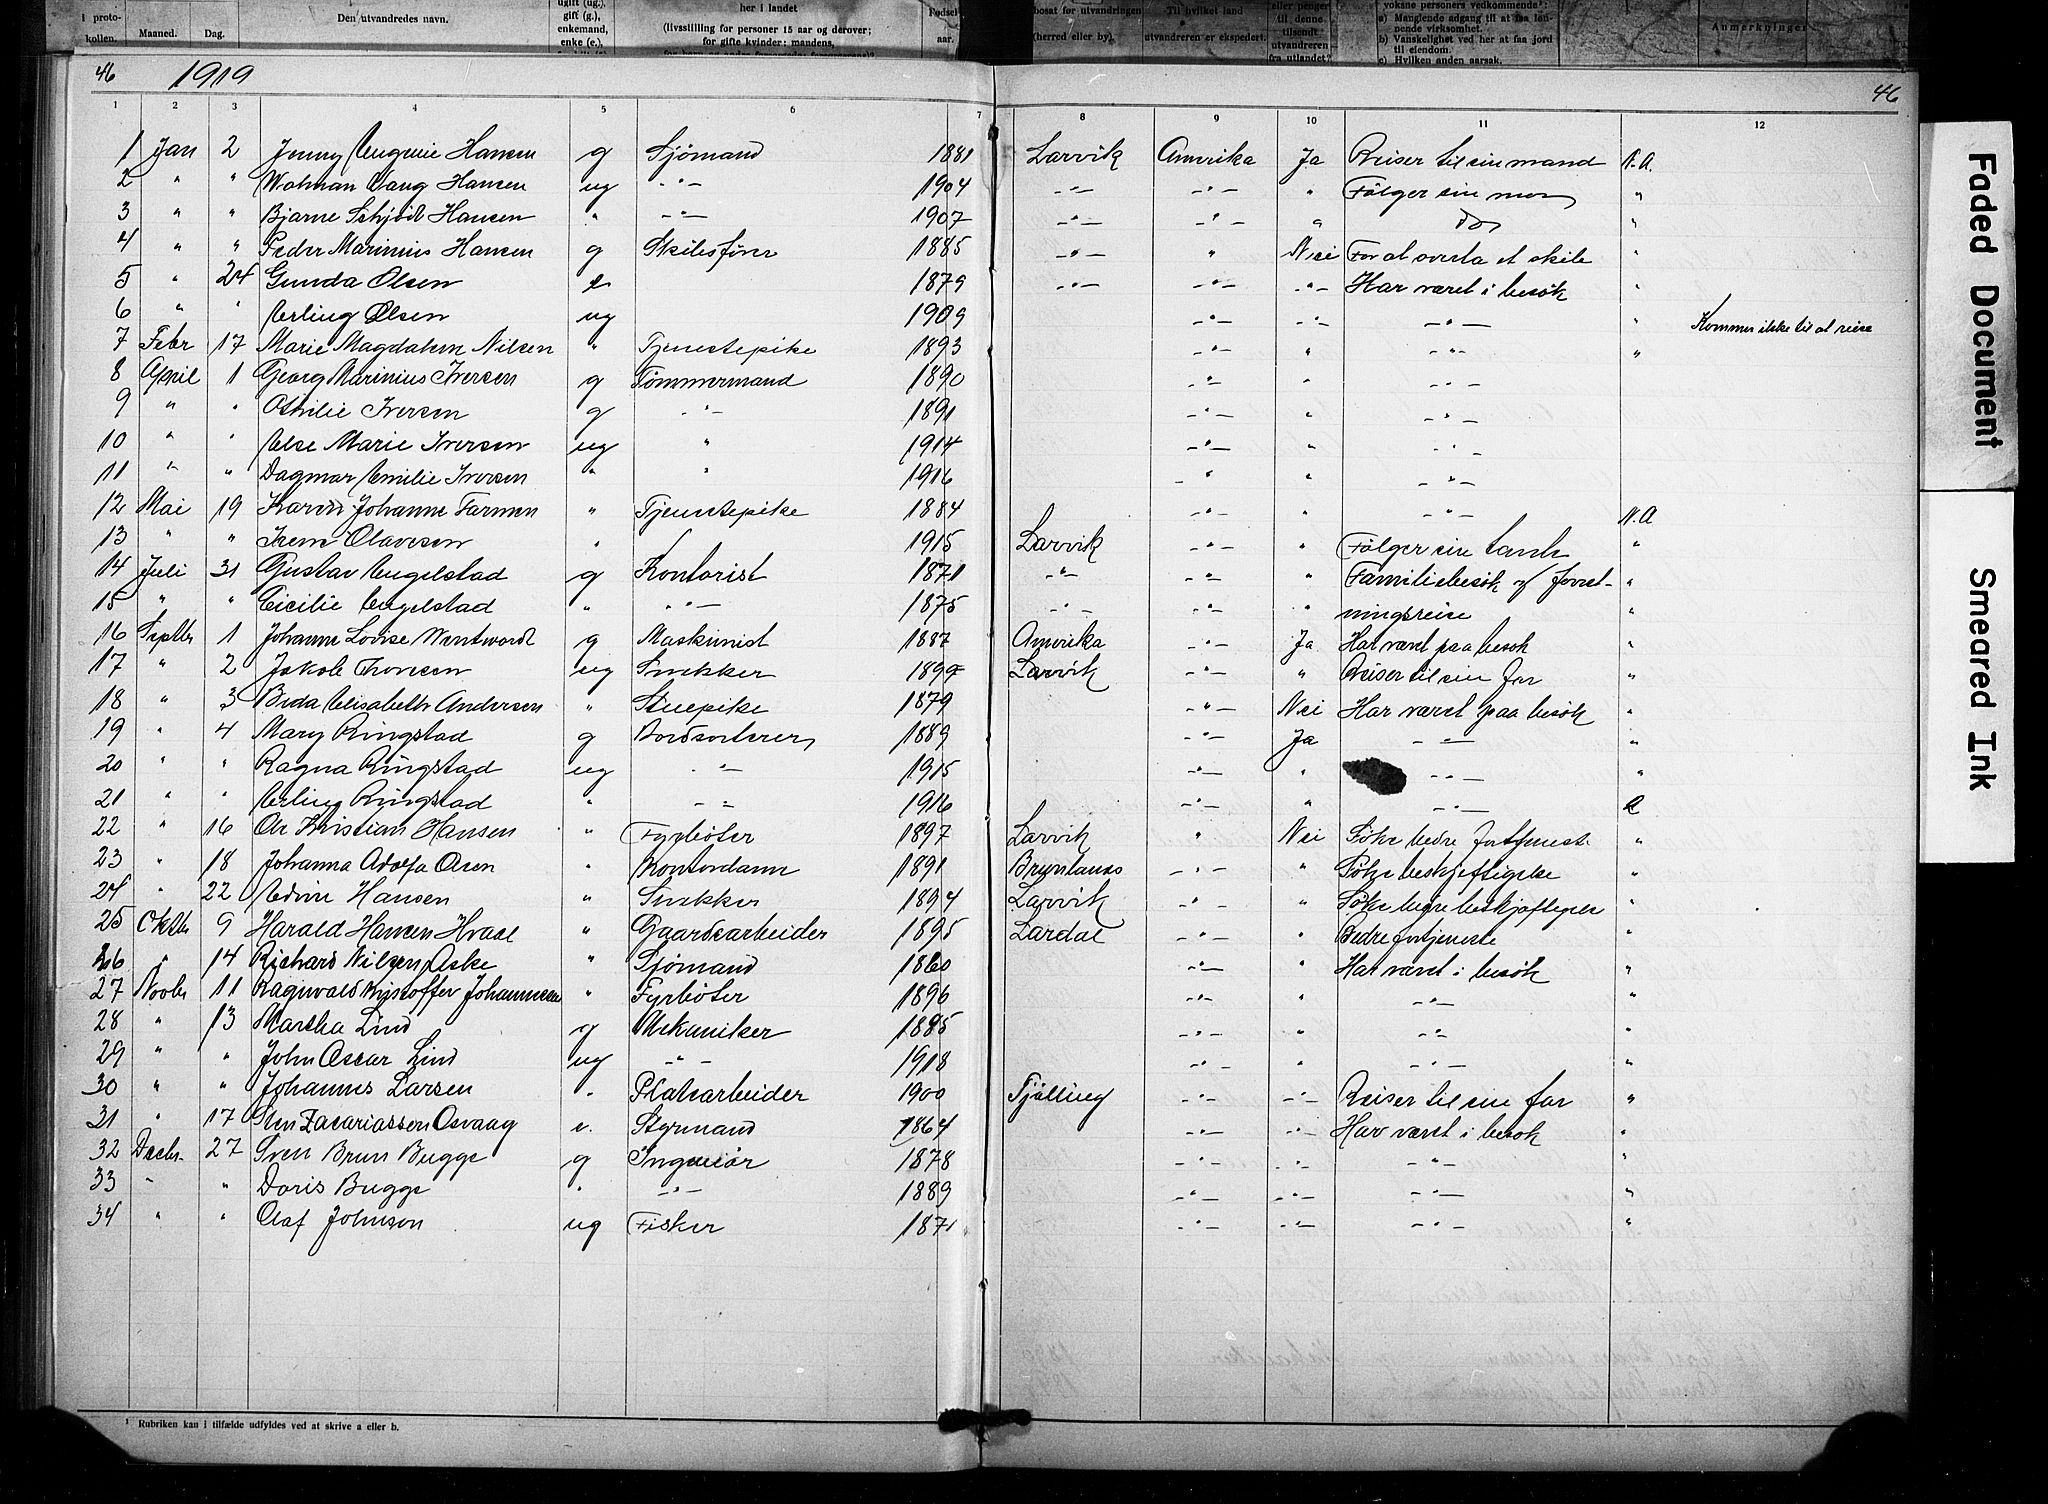 i proto-
kollen.
Maaned.
Dag.
Den utvandredes navn.
ugift (ug.),
gift (g.),
enkemand,
enke (e.).
her i landet
(livsstilling for personer 15 aar og derover;
for gifte kvinder: mandens,
Fødsels-
aar.
bosat før utvandringen
(herred eller by).
Til hvilket land
utvandreren er ekspedert.
eller penger
til denne
tilsendt
utvandreren
fra utlandet?
voksne personers vedkommende¹:
a) Manglende adgang til at faa løn-
nende virksomhet.
b) Vanskelighet ved her at faa jord
til eiendom.
c) Hvilken anden aarsak.
Anmerkninger
46 1919 46
1 2 3 4 5 6 7 8 9 10 11 12
1 Jan 2 Jenny Eugenie Hansen g Sjömand 1881 Larvik Amerika Ja Reiser til sin mand N.A.
2 " " Hansen ug -"- 1904 -"- -"- " Fölger sin mor "
3 " " Bjarne Schjödt Hansen " -"- 1907 -"- -"- " do "
4 " " Peder Marinius Hansen g Skibsförer 1885 -"- " Nei For at overta et skib "
5 " 24 Gunda Olsen e 1879 -"- -"- -"- Har været i besök "
6 " Erling Olsen ug 1909 -"- -"- -"- " Kommer ikke til at reise
7 Febr 17 Marie Magdalene Nilsen " Tjenestepike 1893 -"- " -"- "
8 April 1 Georg Marinius Iversen g Tömmermand 1890 -"- " -"-
9 " " Othilie Iversen g -"- 1891 -"- " -"-
10 " " Else Marie Iversen ug " 1914 -"- " -"-
11 " " Dagmar Emilie Iversen " " 1916 -"- " -"-
12 Mai 19 Karen Johanne Farmen " Tjenestepike 1884 -"- " -"- N.A
13 " " Irene Olavesen " 1915 Larvik -"- " Fölger sin tante "
14 Juli 31 Gustav Engelstad g Kontorist 1871 -"- -"- " Familiebesök forret- "
15 " " Cicilie Engelstad " -"- 1875 -"- -"- " ningsreise "
16 Septbr 1 Johanne Lovise Wentwordt g Maskinist 1887 Amerika -"- Ja Har været paa besök "
17 " 2 Jakob Iversen ug Snekker 1899 Larvik -"- " Reiser til sin far "
18 " 3 Elisabeth Andersen " Stuepike 1879 -"- Nei Har været paa besök "
19 " 4 Mary Ringstad g Bordsorterer 1889 -"- Ja -"- "
20 " " Ragna Ringstad ug -"- 1915 -"- " -"- "
21 " " Erling Ringstad " -"- 1916 -"- " -"-
22 " 16 Ole Kristian Hansen " Fyrböter 1897 Larvik " Nei Söke bedre fortjeneste "
23 " 18 Johanna Adolfa Olsen " Kontordame 1891 Brunlanes -"- " Söke beskjeftigelse "
24 " 22 Edvin Hansen " Snekker 1894 Larvik -"- " Söke bedre beskjæftigelse "
25 Oktbr 9 Harald Hansen Hvaal " Gaardsarbeider 1895 Lardal -"- " Bedre fortjeneste "
26 " 14 Richard Nilsen Aske " Sjömand 1860 -"- " Har været i besök "
27 Novbr 11 Ragnvald Kristoffer Johannesen " Fyrböter 1896 -"- " -"- "
28 " 13 Martha Lind g Mekaniker 1885 -"- " -"- "
29 " " John Oscar Lind ug -"- 1918 -"- " -"- "
30 " " Johannes Larsen " Platsarbeider 1900 Tjölling -"- -"- Reiser til sin far "
31 " 17 Sten Zacariassen Osvaag e. Styrmand 1864 -"- -"- Har været i besök "
32 Decbr. 27 Sven Brun Bugge g Ingeniör 1878 -"- -"- -"- "
33 " " Doris Bugge " -"- 1889 -"- -"- -"- "
34 " " Olaf Johnson ug Fisker 1871 -"- -"- -"- "
¹ Rubriken kan i tilfælde utfyldes ved at skrive a eller b.
Faded Document
Smeared Ink